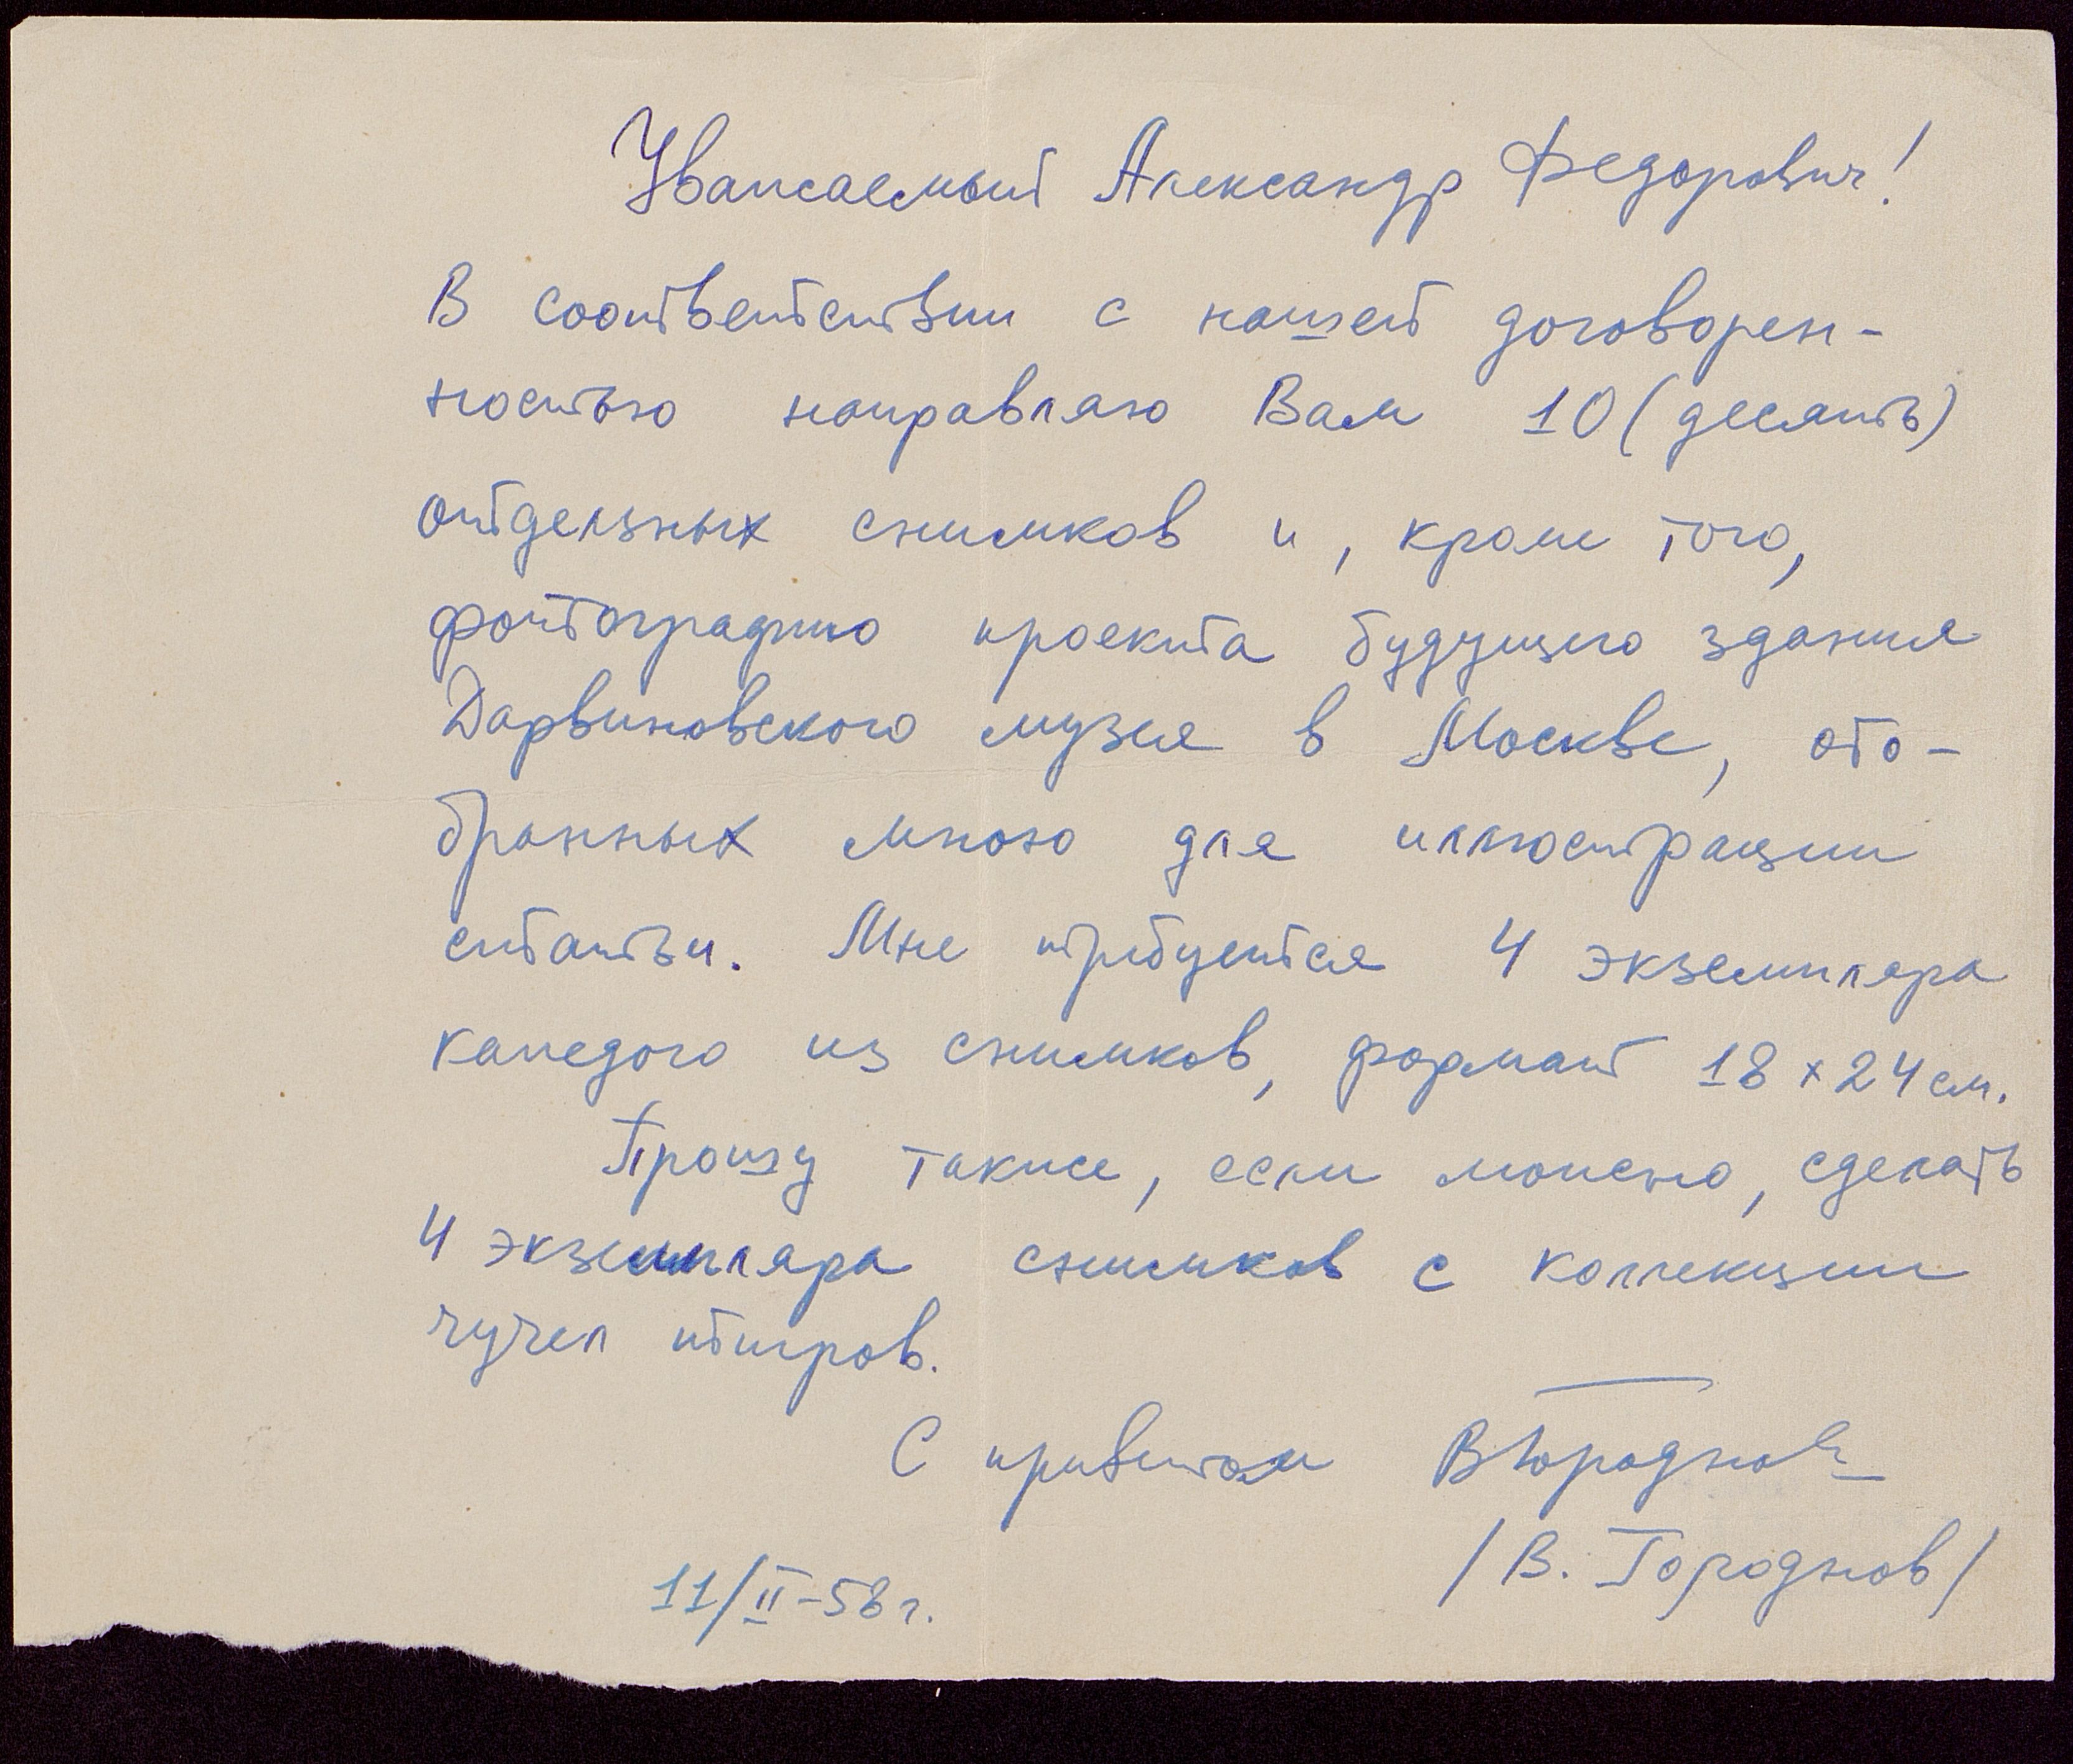 Уважаемый Александр Федорович!
В соответствии с нашей договорен-
ностью направляю Вам 10 (десять)
отдельных снимков и, кроме того,
фотографию проекта будущего здания
Дарвиновского музея в Москве, ото-
бранных мною для иллюстрации
статьи. Мне требуется 4 экземпляра
каждого из снимков, формат 18 x 24 см.
Прошу также, если можно, сделать
4 экземпляра снимков с коллекции
чучел тигров.
С приветом ВГороднов
/В. Городнов/
11/II-58 г.